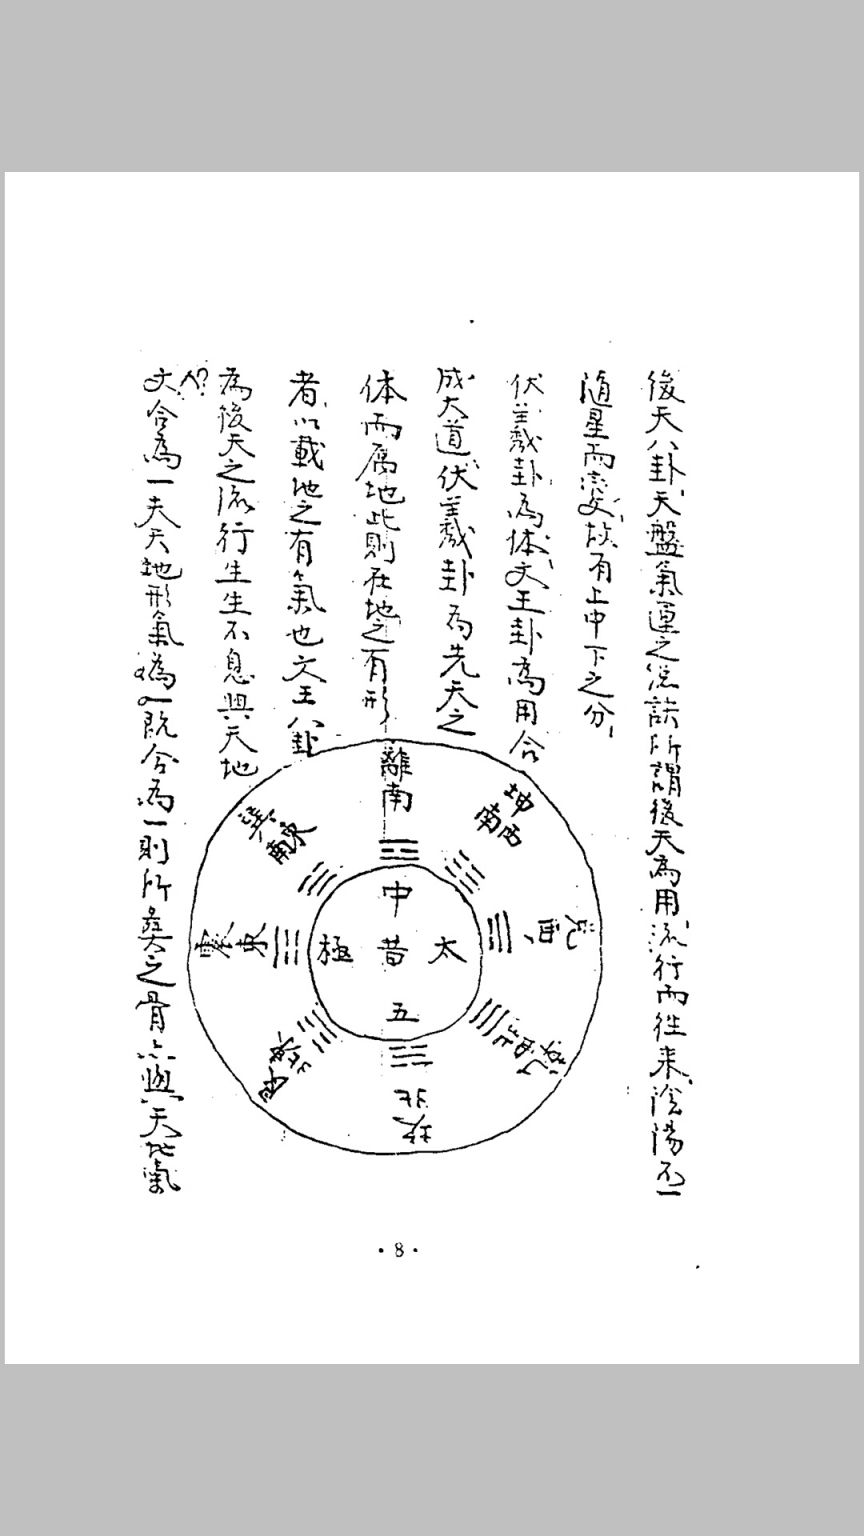 後天八卦天盤氣運之總訣所謂後天為用流行而往來陰陽不一
隨星而變故有上中下之分
伏羲卦為体文王卦為用合
成大道伏羲卦為先天之
体而屬地此則在地之有形
者以載地之有氣也文王八卦
為後天之流行生生不息與天地
人?
文合為一夫天地形氣既合為一則所與之骨亦與天地氣
離南
坤西南
兌西
乾西北
坎北
艮東北
震東
巽東南
中
太昔極
五
·8·